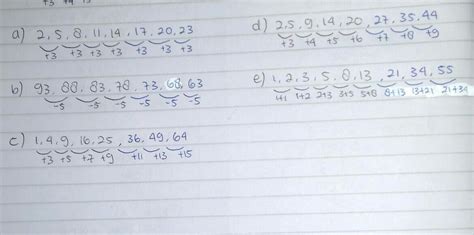 +3 +4 +5
a) 2, 5, 8, 11, 14, 17, 20, 23
+3 +3 +3 +3 +3 +3 +3
b) 93, 88, 83, 78, 73, 68, 63
-5 -5 -5 -5 -5 -5
c) 1, 4, 9, 16, 25, 36, 49, 64
+3 +5 +7 +9 +11 +13 +15
d) 2, 5, 9, 14, 20, 27, 35, 44
+3 +4 +5 +6 +7 +8 +9
e) 1, 2, 3, 5, 8, 13, 21, 34, 55
1+1 1+2 2+3 3+5 5+8 8+13 13+21 21+34